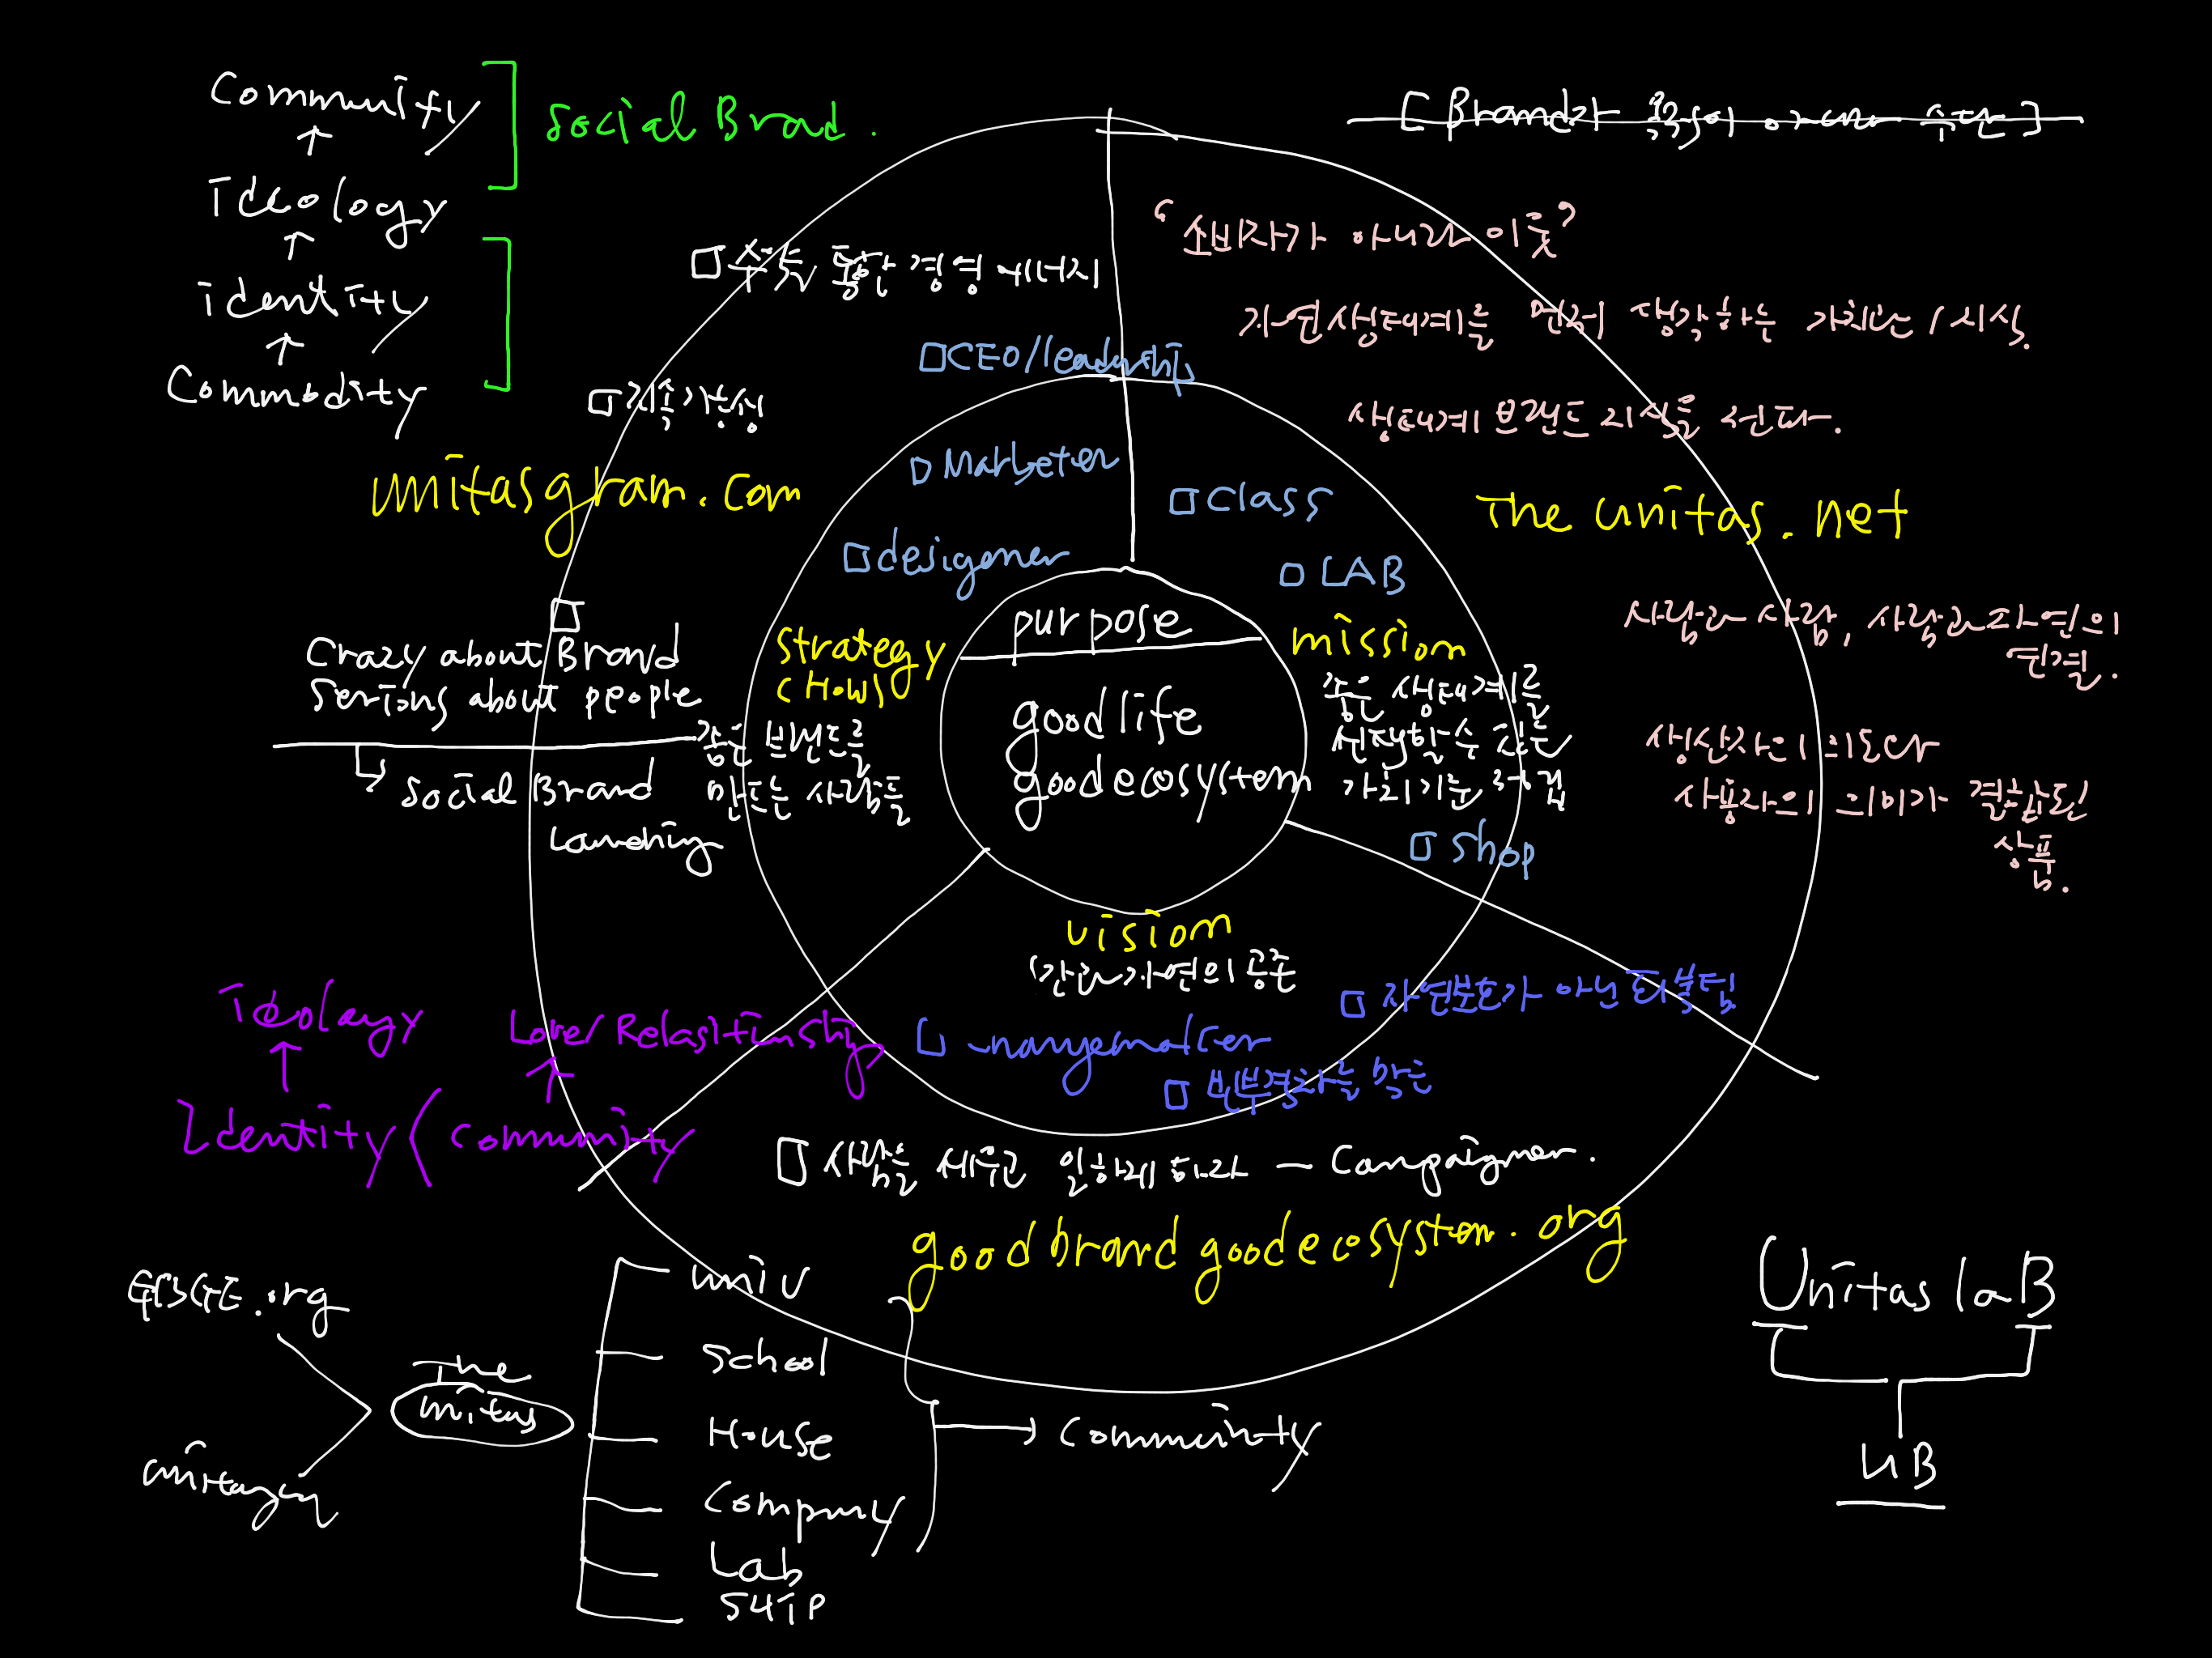 Community
↑
Ideology
↑
identity
↑
Commodity
Social Brad.
[Brand가 목적이 아니라 수단]
"소비자가 아니라 이웃"
자연생태계를 먼저 생각하는 가치관 / 지식.
생태계 브랜드 지식을 전파.
□ 통한 경영 에너지
□ CEO/leadership
□ 지속가능성
□ Marketer
□ Class
unitasgram.com
The unitas.net
□ desigener
□ LAB
사람과 사람, 사람과 자연의
연결.
□
Crazy about Brand
Serious about people
Strategy
(How)
purpose
mission
good life
good ecosystem
좋은 생태계를
선택할 수 있는
가치기준 확립
좋은 브랜드를
만드는 사람들
↳ Social Brand
Lanching
생산자의 의도와
사용자의 의미가 결합된
상품.
□ Shop
vision
인간과 자연의 공존
□ 자연보호가 아닌 회복팀
□ 빈부격차를 막는
Ideology
↑
Love/Relastinship
↑
Identity (Community
□ 사람을 세우고 일하게 하라 — Campaigner.
goodbrandgoodecosystem.org
GBGE.org
The
unitas
unitasgram
univ
School
House
Company
Lab
SHIP
→ Community
Unitas laB
UB